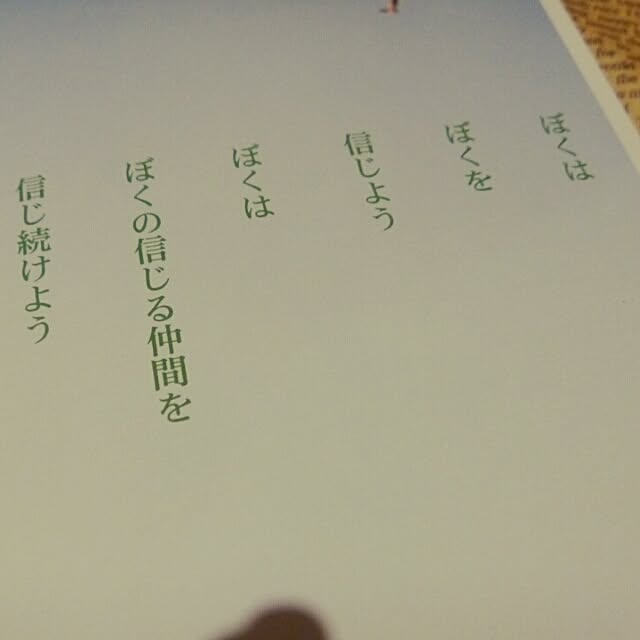 ぼくは
ぼくを
信じよう
ぼくは
ぼくの信じる仲間を
信じ続けよう